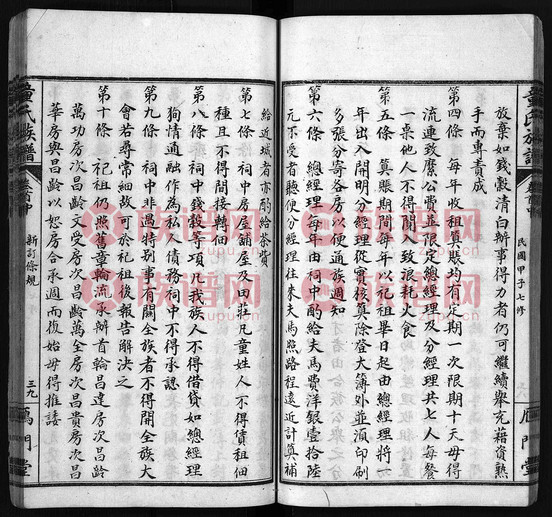 童氏族譜
卷首中
民國甲子七修
鴈門堂
放棄如錢穀清白辦事得力者仍可繼續舉充藉資熟
手而專責成
第四條 每年收租算賬均有定期一次限期十天毋得
流連致縻公費並限定總經理及分經理共七人每餐
一桌他人不得鬧入致浪耗火食
第五條 算賬期間每年以祀祖畢日起由總經理將一
年出入開明分經理從實核算除登大簿外並須印刷
多張分寄各房以便通族週知
第六條 總經理每年由祠中酌給夫馬費洋銀壹拾陸
元下受者聽便分經理往來夫馬照路程遠近計算補
給近城者亦酌給茶費
第七條 祠中房屋舖屋及田莊凡童姓人不得賃租佃
種且不得間接轉佃
第八條 祠中錢穀等項凡我族人不得借貸如總經理
狥情通融作為私人債務祠中不得承認
第九條 祠中非遇特别事有關全族者不得開全族大
會若尋常細故可於祀祖後報告解決之
第十條 祀祖仍照舊章輪流承辦首輪昌達房次昌齡
萬功房次昌齡文受房次昌齡萬全房次昌貴房次昌
華房與昌齡以恕房合承週而復始毋得推諉
童氏族譜
卷首中
新訂條規
三九
鴈門堂
族谱网